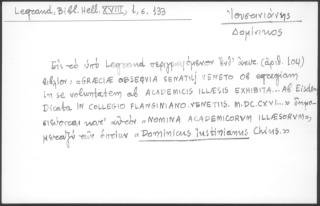 Legrand, Bibl. Hell. XVIII, 1, σ. 133
Ἰουστινιάνης
Δομίνικος
Εἰς τὸ ὑπὸ Legrand περιγραφόμενον ἔνθ' ἄνωτ. (ἀριθ. 104)
βιβλίον: «GRÆCIÆ OBSEQVIA SENATVI VENETO OB egregiam
in se voluntatem ab ACADEMICIS ILLÆSIS EXHIBITA... AB Eisdem
Dicata IN COLLEGIO FLANGINIANO. VENETIIS. M.DC.CXVI...»
κατ' αὐτὸν «NOMINA ACADEMICORVM ILLÆSORVM»,
μεταξὺ τῶν ὁποίων «Dominicus Iustinianus Chius.»